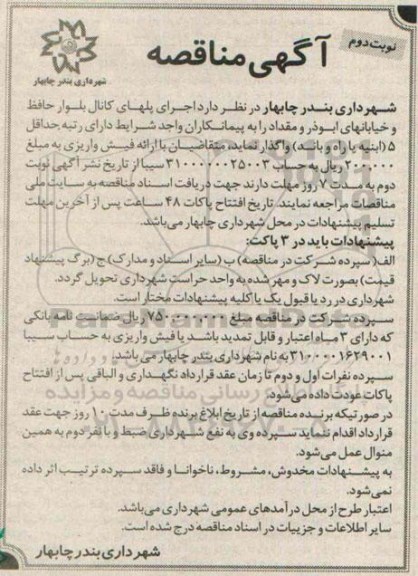 نوبت دوم
آگهی مناقصه
شهرداری بندر چابهار
شهرداری بندر چابهار در نظر دارد اجرای پلهای کانال بلوار حافظ
و خیابانهای ابوذر و مقداد را به پیمانکاران واجد شرایط دارای رتبه حداقل
۵ (ابنیه یا راه و باند) واگذار نماید، متقاضیان با ارائه فیش واریزی به مبلغ
۲۰۰۰۰۰۰ ریال به حساب ۳۱۰۰۰۰۰۰۲۵۰۰۳ سیبا از تاریخ نشر آگهی نوبت
دوم به مدت ۷ روز مهلت دارند جهت دریافت اسناد مناقصه به سایت ملی
مناقصات مراجعه نمایند. تاریخ افتتاح پاکات ۴۸ ساعت پس از آخرین مهلت
تسلیم پیشنهادات در محل شهرداری چابهار می‌باشد.
پیشنهادات باید در ۳ پاکت:
الف( سپرده شرکت در مناقصه) ب (سایر اسناد و مدارک) ج (برگ پیشنهاد
قیمت) بصورت لاک و مهر شده به واحد حراست شهرداری تحویل گردد.
شهرداری در رد یا قبول یک یا کلیه پیشنهادات مختار است.
سپرده شرکت در مناقصه مبلغ ۷۵۰۰۰۰۰۰۰ ریال ضمانت نامه بانکی
که دارای ۳ ماه اعتبار و قابل تمدید باشد یا فیش واریزی به حساب سیبا
۳۱۰۰۰۰۱۶۲۹۰۰۱ به نام شهرداری بندر چابهار می باشد.
سپرده نفرات اول و دوم تا زمان عقد قرارداد نگهداری و الباقی پس از افتتاح
پاکات عودت داده می‌شود.
در صورتیکه برنده مناقصه از تاریخ ابلاغ برنده ظرف مدت ۱۰ روز جهت عقد
قرارداد اقدام ننماید سپرده وی به نفع شهرداری ضبط و با نفر دوم به همین
منوال عمل می‌شود.
به پیشنهادات مخدوش، مشروط، ناخوانا و فاقد سپرده ترتیب اثر داده
نمی‌شود.
اعتبار طرح از محل درآمدهای عمومی شهرداری می‌باشد.
سایر اطلاعات و جزییات در اسناد مناقصه درج شده است.
شهرداری بندر چابهار